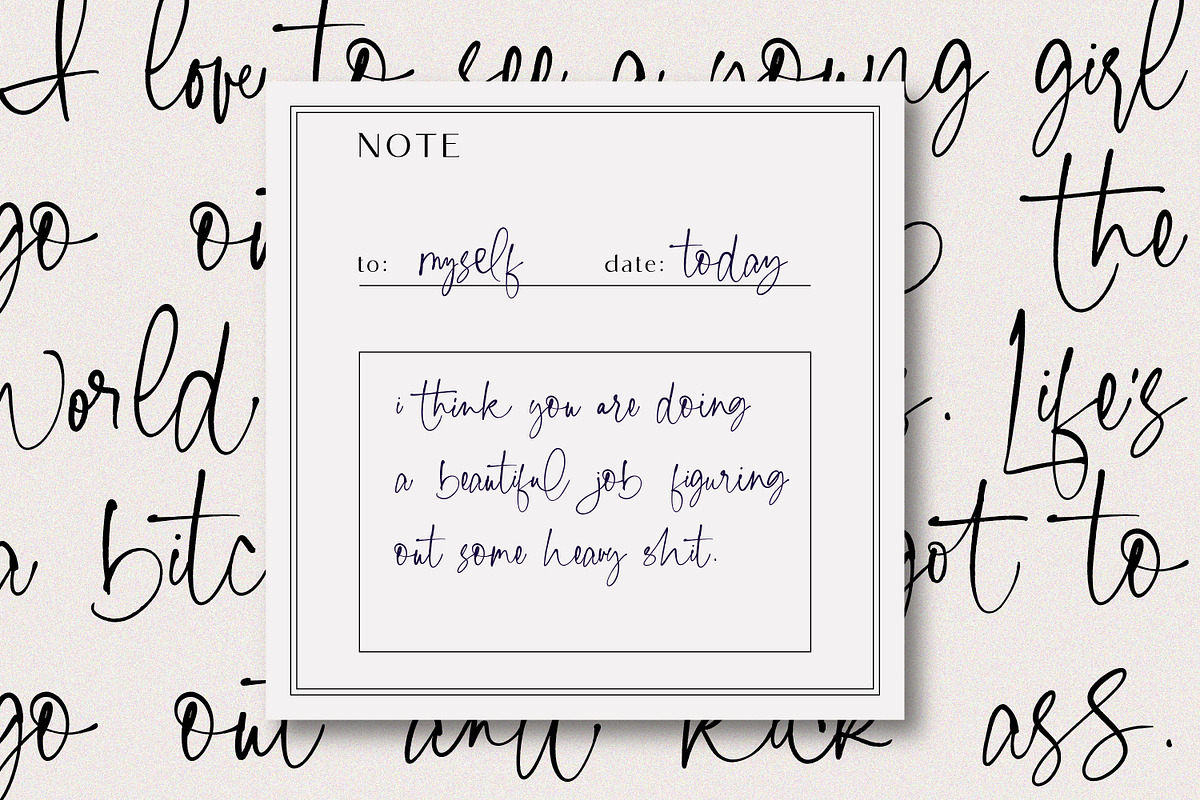 I love to see a young girl
go the
world Life's
a got to
go out and kick ass.
NOTE
to: myself date: today
i think you are doing
a beautiful job figuring
out some heavy shit.